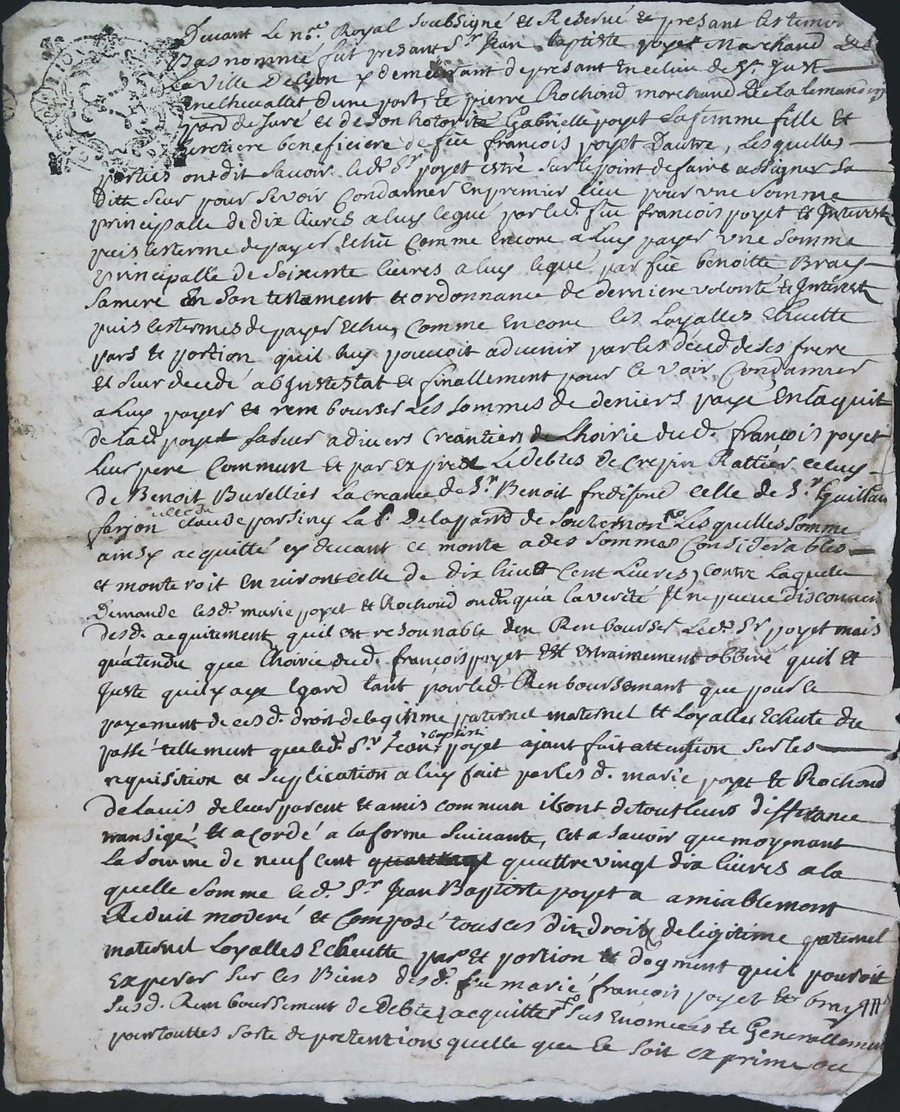 Devant Le no.re Royal Soubsigné et Reservé et presant les temoins
Bas nommé fut presant Sr Jean baptiste poyet Marchand de
la Ville De Lyon y demeurant de presant en ce lieu de St Just
en chevallet d'une part, et pierre Rochond marchand De la
par de Juré et de son hotorité Gabrielle poyet sa femme fille et
heretiere beneficiere de fue françois poyet D'autre, Lesquelles
parties ont dit Savoir led. Sr poyet estre sur le point de faire assigner Sa
Ditte Seur pour se voir Condanner en premier lieu pour une somme
principalle de dix livres a luy legué par led. fue françois poyet et Interest
puis les terme de payer Echue Comme Encore a Luy payer une Somme
principalle de Soixente livres a luy legué par fue benoitte Bray
Sa mere En Son testament et ordonnance de derniere volonté et Interest
puis les termes de payer Echu, Comme Encore les Loyalles Echeutte
pars et portion quil luy pouvoit advenir par les deced de Ses frere
et Seur decedé ab Intestat et finallement pour ce voir Condanner
a Luy payer et rembourser Les Sommes de deniers payé En laquit
de lad. poyet Sa Seur a divers Creantiers de Lhoirie dud. françois poyet
Leur pere Commun et par Exprez Le debtes de Crespin Rattier celuy
de Benoit Burellier La creance de Sr Benoit celle de Sr Guillau
farjon celle de Claude parsiny La D. De de Souternon Lesquelles Somme
ainsy acquitté cy devant ce monte a des Sommes Considerables
et monteroit Environt celle de dix huit Cent Livres, contre Laquelle
Demande lesd. marie poyet et Rochond ont qua la verité Il ne peuve disconvenir
desd. acquitement quil est resonnable den Rembourser Led. Sr poyet mais
quatendu que Lhoirie dud. françois poyet Est Estraimement obbéré quil Et
Juste quil y aye Egard tant pour led. Remboursemant que pour le
payement de ces d. droit de legitime paternel maternel et Loyalles Echutte du
passé tellement que led. Sr Jean baptiste poyet ajant fait attention Sur les
requisition et Suplication a luy fait par les d. marie poyet et Rochond
de Lavis de leur parent et amis commun ils ont de tout leurs differance
transigé et acordé a la forme Suivante, cet a Savoir que moyenant
La Somme de neuf cent quattre vingt dix livres a la
quelle Somme led. Sr Jean Baptiste poyet a amiablemont
Reduit moderé et Composé tous ces dit Droit de legitime paternel
maternel Loyalles Echeutte part et portion et dogment quil pouroit
Experer Sur les Biens desd. fue marié françois poyet et bray
Susd. Remboursement de debtes acquitte Sus Enomées et Generallement
pour touttes Sorte de pretentions quelle que Ce Soit exprimé ou